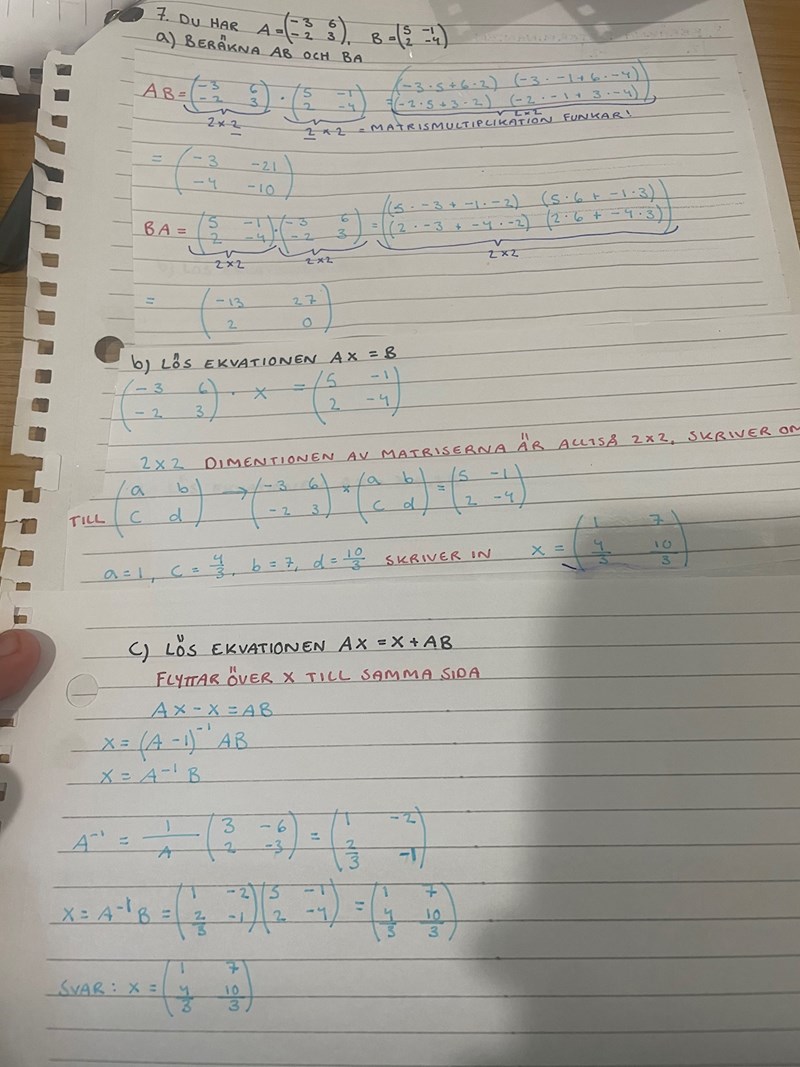 7. DU HAR A=(-3 6 / -2 3), B=(5 -1 / 2 -4)
a) BERÄKNA AB OCH BA
AB=(-3 6 / -2 3) · (5 -1 / 2 -4) =((-3·5+6·2) (-3·-1+6·-4) / (-2·5+3·2) (-2·-1+3·-4))
2×2 2×2 2×2
= MATRISMULTIPLIKATION FUNKAR!
= (-3 -21 / -4 -10)
BA = (5 -1 / 2 -4)·(-3 6 / -2 3) = ((5·-3+-1·-2) (5·6+-1·3) / (2·-3+-4·-2) (2·6+-4·3))
2×2 2×2 2×2
= (-13 27 / 2 0)
b) LÖS EKVATIONEN AX = B
(-3 6 / -2 3) · X = (5 -1 / 2 -4)
2×2 DIMENTIONEN AV MATRISERNA ÄR ALLTSÅ 2×2, SKRIVER OM
TILL (a b / c d) → (-3 6 / -2 3) × (a b / c d) = (5 -1 / 2 -4)
a=1, c=4/3, b=7, d=10/3 SKRIVER IN X = (1 7 / 4/3 10/3)
C) LÖS EKVATIONEN AX = X + AB
FLYTTAR ÖVER X TILL SAMMA SIDA
AX-X = AB
X = (A-1)⁻¹ AB
X = A⁻¹ B
A⁻¹ = 1/A (3 -6 / 2 -3) = (1 -2 / 2/3 -1)
X = A⁻¹B = (1 -2 / 2/3 -1)(5 -1 / 2 -4) = (1 7 / 4/3 10/3)
SVAR: X = (1 7 / 4/3 10/3)